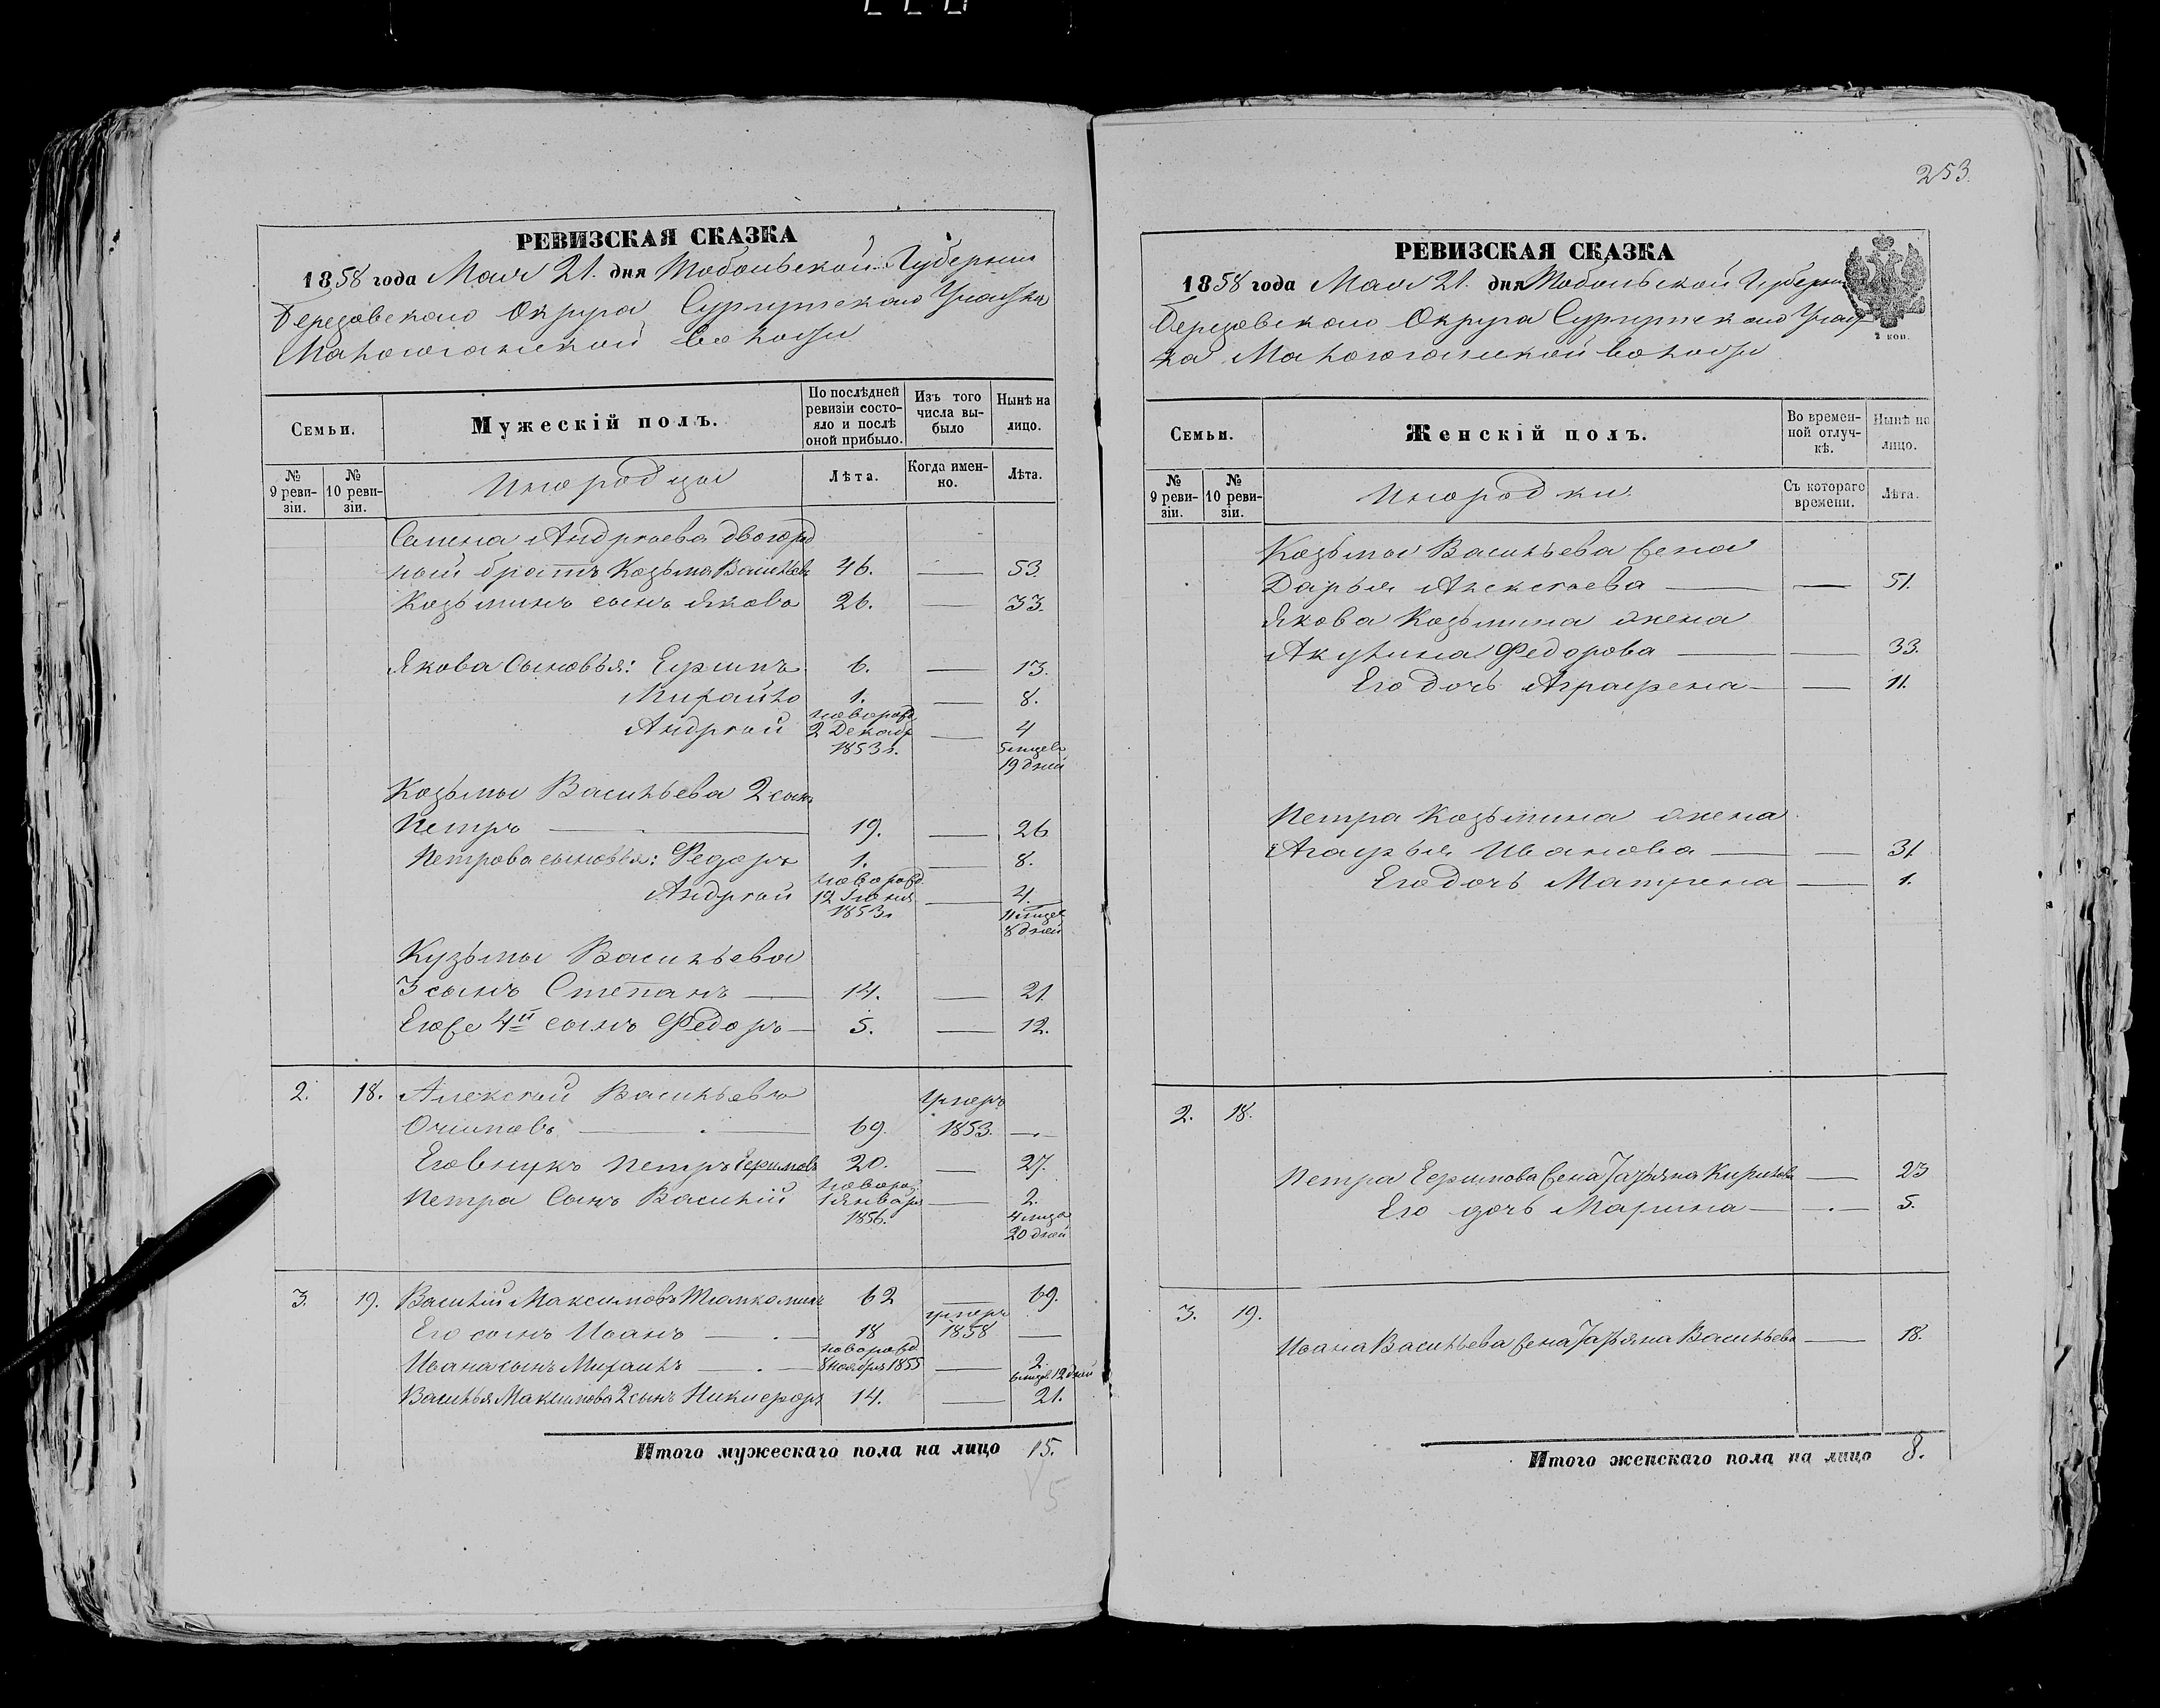 РЕВИЗСКАЯ СКАЗКА
1858 года Мая 21. дня Тобольской Губернии
Березовскаго Округа Сургутскаго Участка
Малоюганской волости
Семьи.
Мужескій полъ.
По послѣдней ревизіи состо-
яло и послѣ
оной прибыло.
Изъ того
числа вы-
было
Нынѣ на
лицо.
№
9 реви-
зіи.
№
10 реви-
зіи.
Инородцы
Лѣта.
Когда имен-
но.
Лѣта.
Семена Андреева двоюрод
ный братъ Козьма Васильевъ 46. — 53.
Козьминъ сынъ Яковъ 26. — 33.
Якова Сыновья: Ефимъ 6. — 13.
Михайло 1. — 8.
Андрей новорожд 2 Декабр 1853 г. — 4 5 мцевъ 19 дней
Козьмы Васильева 2 сынъ
Петръ — 19. — 26
Петрова сыновья: Федоръ 1. — 8.
Андрей новорожд 12 Іюня 1853 г — 4. 11 мцев 8 дней
Кузьмы Васильева
3 сынъ Степанъ — 14. — 21.
Егоже 4й сынъ Федоръ — 5. — 12.
2. 18. Алексей Васильевъ умеръ
69. 1853. —
Его внукъ Петръ Ефимовъ 20. — 27.
Петра Сынъ Василій новорож 1 января 1856. — 2. 4 мца 20 дней
3. 19. Василій Максимовъ 62 — 69.
Его сынъ Иванъ — 18 умеръ 1858 —
Ивана сынъ Михаилъ — новорожд 8 ноября 1855 — 2. 6 мцев 12 дней
Василья Максимова 2 сынъ Никифоръ 14. — 21.
Итого мужескаго пола на лицо 15.
253.
РЕВИЗСКАЯ СКАЗКА
1858 года Мая 21. дня Тобольской Губерніи
Березовскаго Округа Сургутскаго Участ
ка Малоюганской волости
2 коп.
Семьи.
Женскій полъ.
Во времен-
ной отлуч-
кѣ.
Нынѣ на
лицо.
№
9 реви-
зіи.
№
10 реви-
зіи.
Инородки.
Съ котораго
времени.
Лѣта.
Козьмы Васильева жена
Дарья Алексеева — — 51.
Якова Козьмина жена
Акулина Федорова — — 33.
Его дочь Аграфена — — 11.
Петра Козьмина жена
Агафья Иванова — — 31
Его дочь Матрена — 1.
2. 18.
Петра Ефимова жена Татьяна Кирилова — 23
Его дочь Марина — — 5.
3. 19.
Ивана Васильева жена Татьяна Васильева — 18.
Итого женскаго пола на лицо 8.